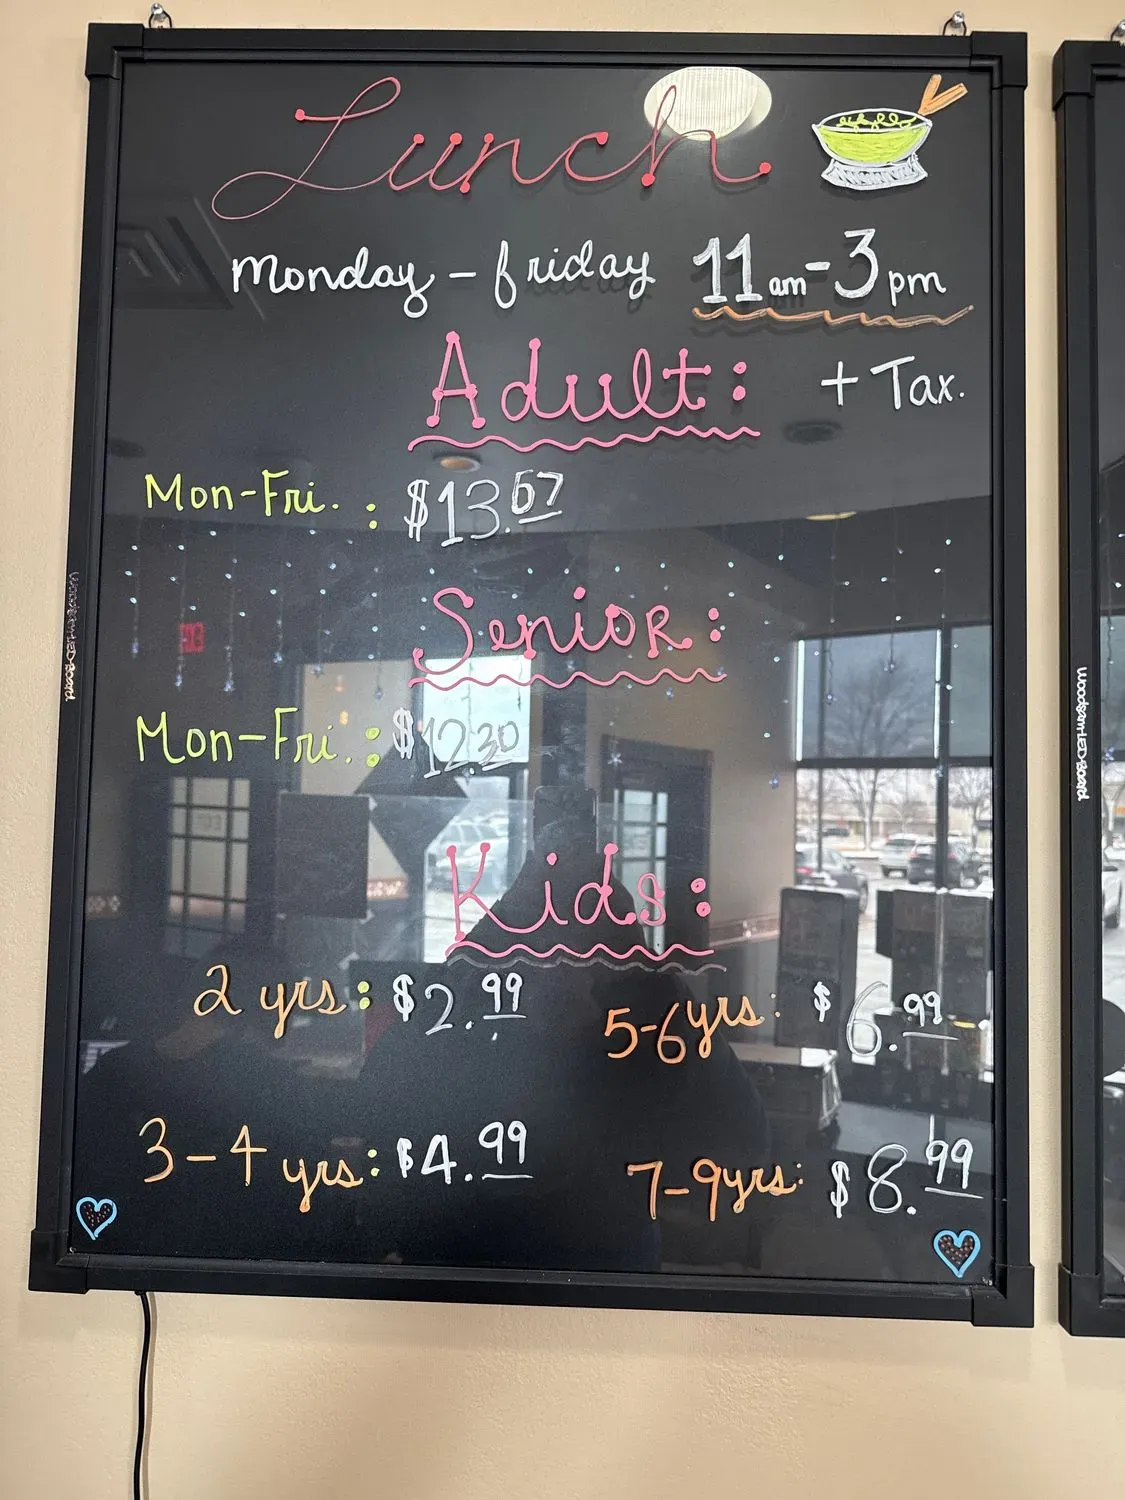 Lunch
Monday - friday 11am - 3pm
Adult: + Tax.
Mon-Fri. : $13.67
Senior:
Mon-Fri. : $12.30
Kids:
2 yrs: $2.99
5-6yrs: $6.99
3-4 yrs: $4.99
7-9yrs: $8.99
Woodsam-LED-Board
Woodsam-LED-Board